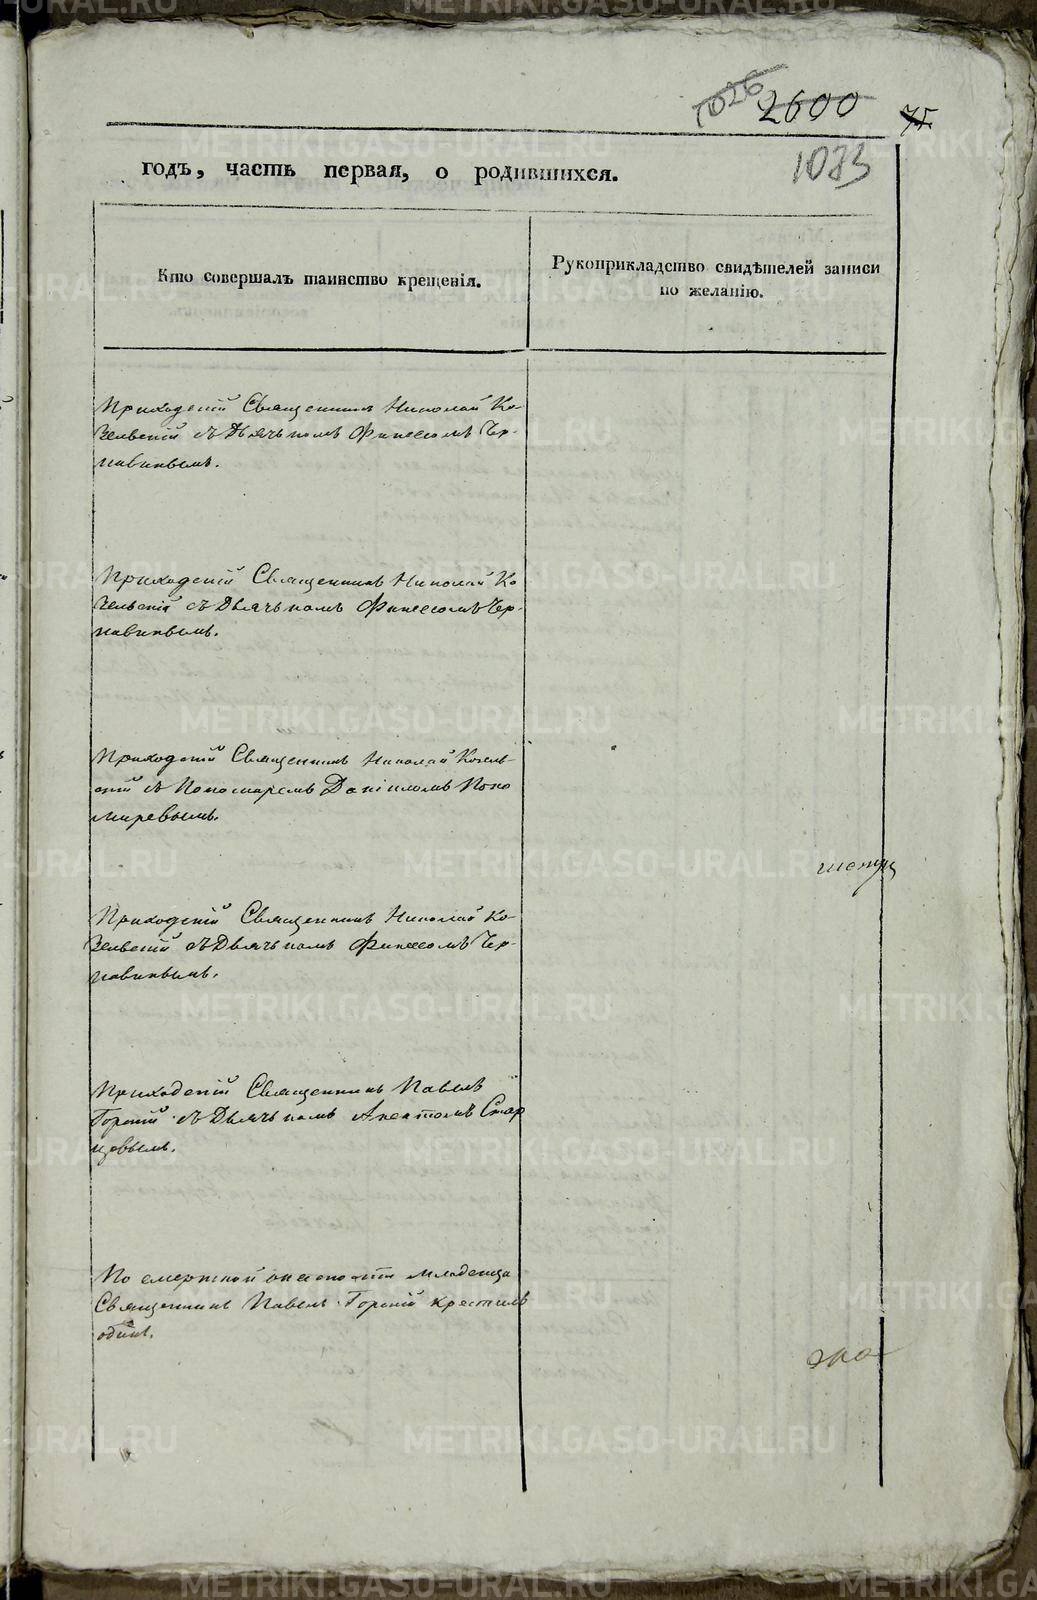 1026
2600
75
1083
годъ, часть первая, о родившихся.
Кто совершалъ таинство крещенія.
Рукоприкладство свидѣтелей записи
по желанію.
Приходскій Священникъ Николай Ко-
зельскій съ Дьячькомъ Финеесомъ Чер-
навинымъ.
Приходскій Священникъ Николай Ко
зельскій съ Дьячькомъ Финеесомъ Чер-
навинымъ.
Приходскій Священникъ Николай Козель-
скій съ Пономаремъ Даніиломъ Поно
маревымъ.
Приходскій Священникъ Николай Ко-
зельскій съ Дьячькомъ Финеесомъ Чер-
навинымъ.
Приходскій Священникъ Павелъ
Горный съ Дьячькомъ Стар
цовымъ.
По смертной опасности младенца
Священникъ Павелъ Горный крестилъ
одинъ.
METRIKI.GASO-URAL.RU